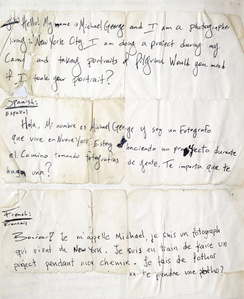 Hello! My name is Michael George and I am a photographer
living in New York City. I am doing a project during my
Camino and taking portraits of pilgrims. Would you mind
if I took your portrait?
Spanish:
Español
Hola, Mi nombre es Michael George y soy un fotografo
que vive en Nueva York. Estoy haciendo un proyecto durante
el Camino tomando fotografias de gente. Te importa que te
haga una?
French:
Francais
Bonjour! Je m'appelle Michael, je suis un fotograph
qui vient de New York. Je suis en train de faire un
project pendant mon chemin. Je fais de fothos
te prendre une photo?